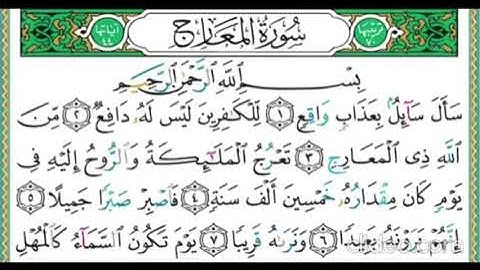 ترتيبها ٧٠ سُورَةُ المَعَارِجِ آياتها ٤٤
بِسْمِ اللَّهِ الرَّحْمَٰنِ الرَّحِيمِ
سَأَلَ سَآئِلٌۢ بِعَذَابٍ وَاقِعٍ ۝١ لِّلْكَٰفِرِينَ لَيْسَ لَهُۥ دَافِعٌ ۝٢ مِّنَ
اللَّهِ ذِى الْمَعَارِجِ ۝٣ تَعْرُجُ الْمَلَٰٓئِكَةُ وَالرُّوحُ إِلَيْهِ فِى
يَوْمٍ كَانَ مِقْدَارُهُۥ خَمْسِينَ أَلْفَ سَنَةٍ ۝٤ فَاصْبِرْ صَبْرًا جَمِيلًا ۝٥
إِنَّهُمْ يَرَوْنَهُۥ بَعِيدًا ۝٦ وَنَرَىٰهُ قَرِيبًا ۝٧ يَوْمَ تَكُونُ السَّمَآءُ كَالْمُهْلِ